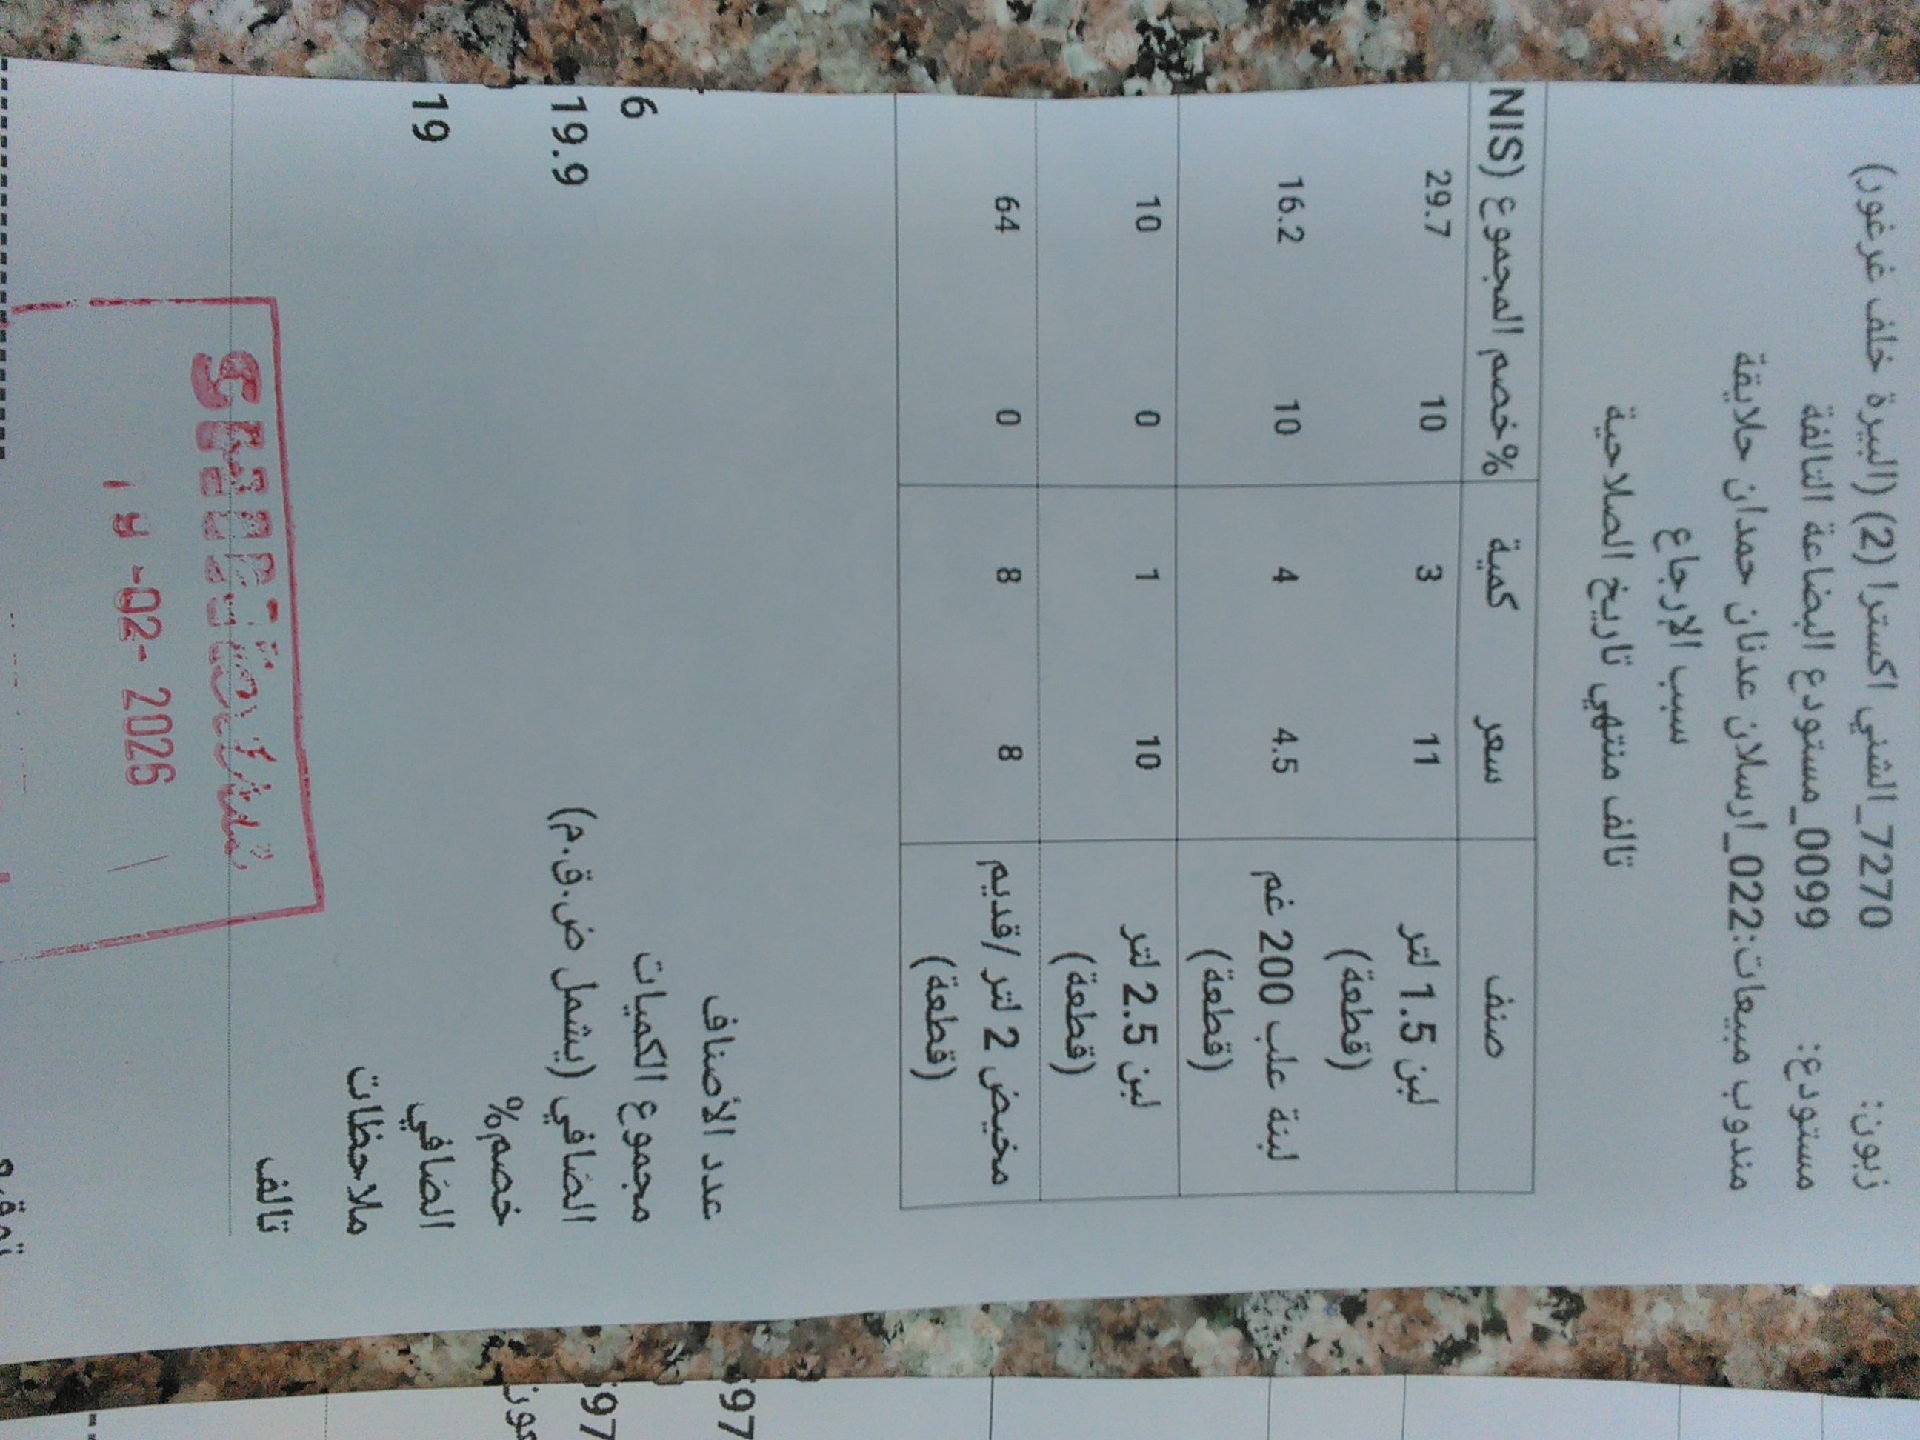 زبون: 7270_الشني اكسترا (2) (البيرة خلف غرغور)
مستودع: 0099_مستودع البضاعة التالفة
مندوب مبيعات:022_ارسلان عدنان حمدان حلايقة
سبب الإرجاع
تالف منتهي تاريخ الصلاحية
صنف سعر كمية %خصم المجموع (NIS
لبن 1.5 لتر (قطعة) 11 3 10 29.7
لبنة علب 200 غم (قطعة) 4.5 4 10 16.2
لبن 2.5 لتر (قطعة) 10 1 0 10
مخيض 2 لتر /قديم (قطعة) 8 8 0 64
عدد الأصناف
مجموع الكميات 6
الصافي (يشمل ض.ق.م) 19.9
خصم%
الصافي 19
ملاحظات
تالف
19 -02- 2026
97
97